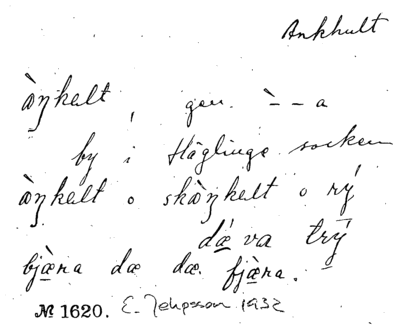 Ankhult
àŋkelt, gen. ` – – a
by i Häglinge socken
àŋkelt o skàŋkelt o rý
dǽ va trý
bjæ̀ra dæ dæ. fjæ̀ra.
№ 1620. E. Jeppsson 1932